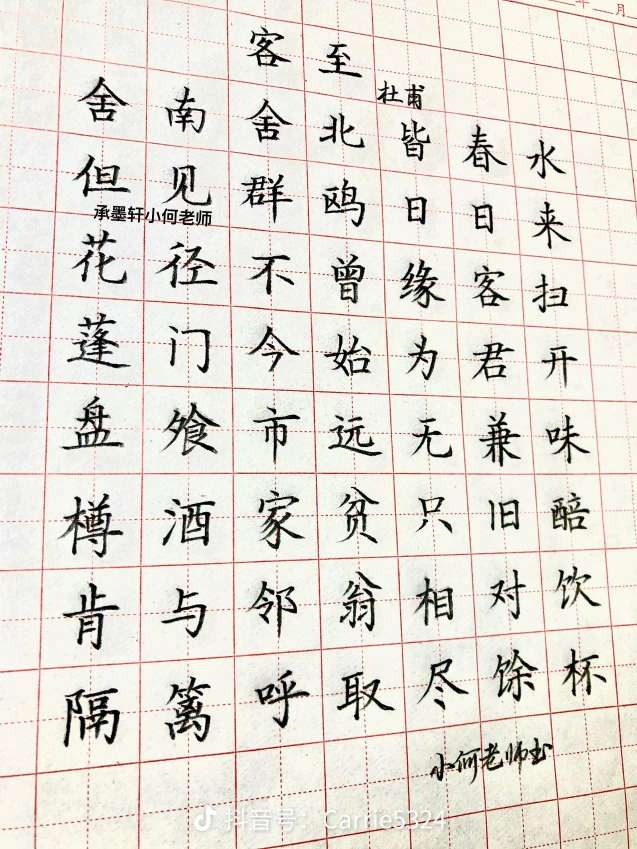 年 月
客至
杜甫
舍南舍北皆春水
但见群鸥日日来
承墨轩小何老师
花径不曾缘客扫
蓬门今始为君开
盘飧市远无兼味
樽酒家贫只旧醅
肯与邻翁相对饮
隔篱呼取尽馀杯
小何老师书
抖音号：Carrie5324